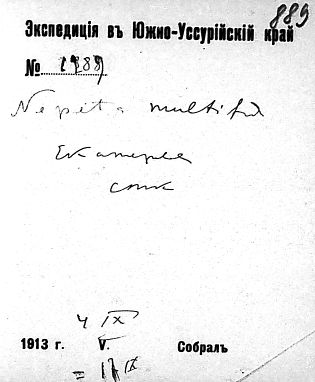 889
Экспедиція въ Южно-Уссурійскій край
№ 1989
Nepeta multifid
4 IX
1913 г. V. Собралъ
= 17 IX